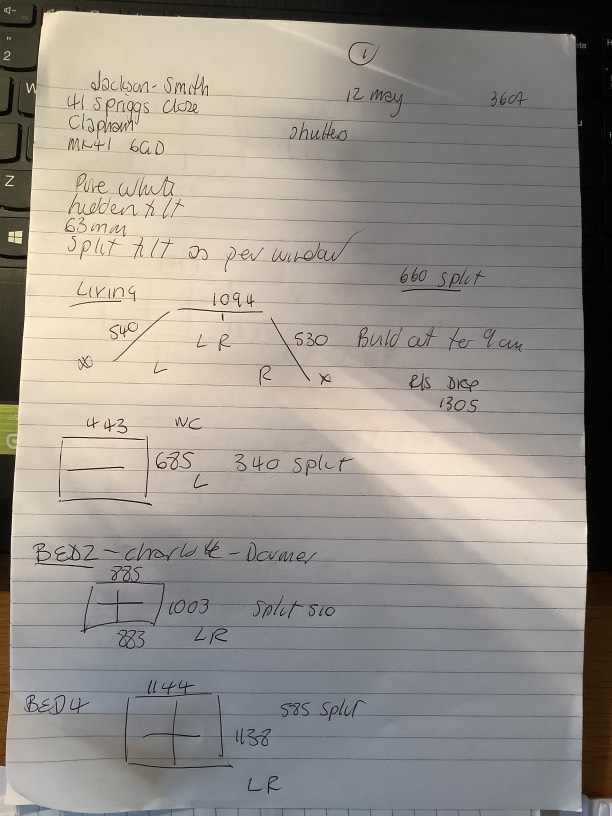 1
Jackson-Smith
41 Spriggs Close
Clapham
MK41 6GD
12 may
3607
Shutters
Pure White
hidden tilt
63mm
Split tilt as per window
660 split
Living
1094
540
L R
530
Build out ter 9cm
L
R
x
R/S Drop
1305
443
WC
685
340 split
L
BED2 - Charlotte - Dormer
885
1003
Split 510
883
LR
BED4
1144
585 split
1138
LR